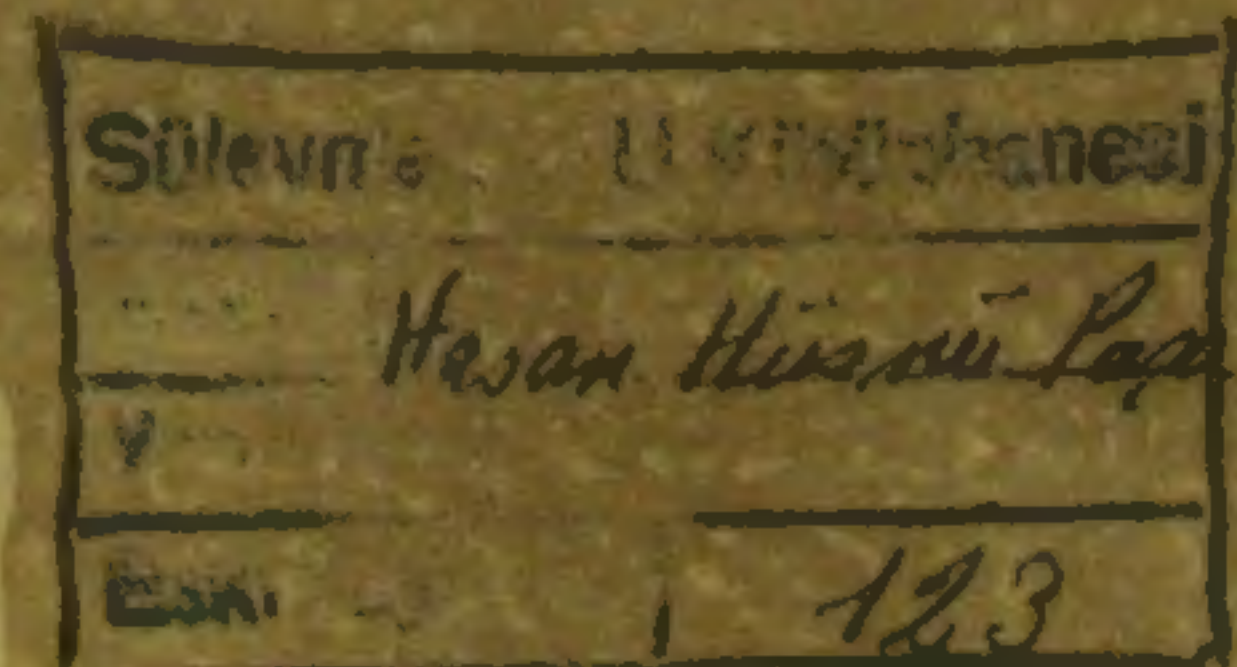 Süleymaniye U. Kütüphanesi
Hasan Hüsnü Paşa
Eski
123